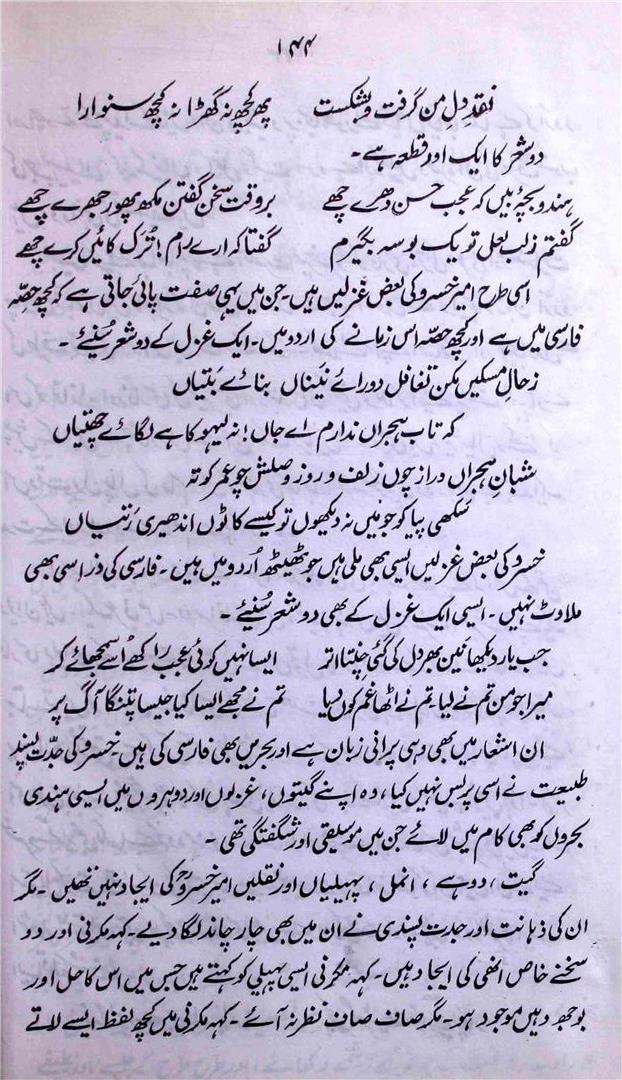 ۱۴۴
نقدِ دل من گرفت و بشکست پھر کچھ نہ گھڑا نہ کچھ سنوارا
دو شعر کا ایک اور قطعہ ہے۔
ہندو بچۂ بیں کہ عجب حسن دھرے چھے بروقت سخن گفتن مکھ پھور جھرے چھے
گفتم ز لب لعلِ تو یک بوسہ بگیرم گفتا کہ ارے رام! تُرک کائیں کرے چھے
اسی طرح امیر خسرو کی بعض غزلیں ہیں۔ جن میں یہی صفت پائی جاتی ہے کہ کچھ حصّہ
فارسی میں ہے اور کچھ حصّہ اس زمانے کی اردو میں۔ ایک غزل کے دو شعر سُنیئے۔
زحالِ مسکیں مکن تغافل دورائے نیناں بنائے بتیاں
کہ تاب ہجراں ندارم اے جاں! نہ لیہو کاہے لگائے چھتیاں
شبانِ ہجراں دراز چوں زلف و روز وصلش چو عمر کوتہ
سکھی پیا کو جو میں نہ دیکھوں تو کیسے کاٹوں اندھیری رَتیاں
خسرو کی بعض غزلیں ایسی بھی ملی ہیں جو ٹھیٹھ اُردو میں ہیں۔ فارسی کی ذرا سی بھی
ملاوٹ نہیں۔ ایسی ایک غزل کے بھی دو شعر سُنیئے۔
جب یار دیکھا نین بھر دل کی گئی چنتا اتر ایسا نہیں کوئی عجب راکھے اُسے سمجھائے کر
میرا جو من تم نے لیا تم نے اٹھا غم کوں دیا تم نے مجھے ایسا کیا جیسا پتنگا آگ پر
ان اشعار میں بھی وہی پرانی زبان ہے اور بحریں بھی فارسی کی ہیں۔ خسرو کی جدّت پسند
طبیعت نے اسی پر بس نہیں کیا، وہ اپنے گیتوں، غزلوں اور دوہروں میں ایسی ہندی
بحروں کو بھی کام میں لائے جن میں موسیقی اور شگفتگی تھی۔
گیت، دوہے، انمل، پہیلیاں اور نقلیں امیر خسروؒ کی ایجاد نہیں تھیں۔ مگر
ان کی ذہانت اور جدت پسندی نے ان میں بھی چار چاند لگا دیے۔ کہہ مکرنی اور دو
سخنے خاص انھی کی ایجاد ہیں۔ کہہ مکرنی ایسی پہیلی کو کہتے ہیں جس میں اس کا حل اور
بوجھ وہیں موجود ہو۔ مگر صاف صاف نظر نہ آئے۔ کہہ مکرنی میں کچھ لفظ ایسے لاتے